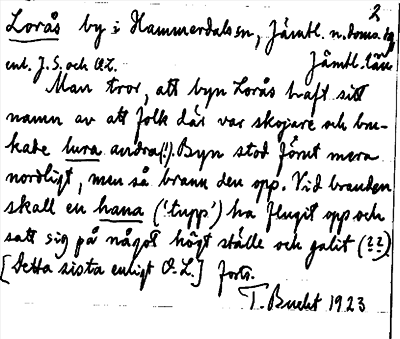 2
Lorås by i Hammerdals sn, Jämtl. n. doms.
Jämtl. län
enl. J. S. och O. L.
Man tror, att byn Lorås haft sitt
namn av att folk där var skojare och bru-
kade lura andra(!). Byn stod förut mera
nordligt, men så brann den opp. Vid branden
skall en hana ('tupp') ha flugit opp och
satt sig på något högt ställe och galit (??)
[Detta sista enligt O. L.] forts.
T. Bucht 1923